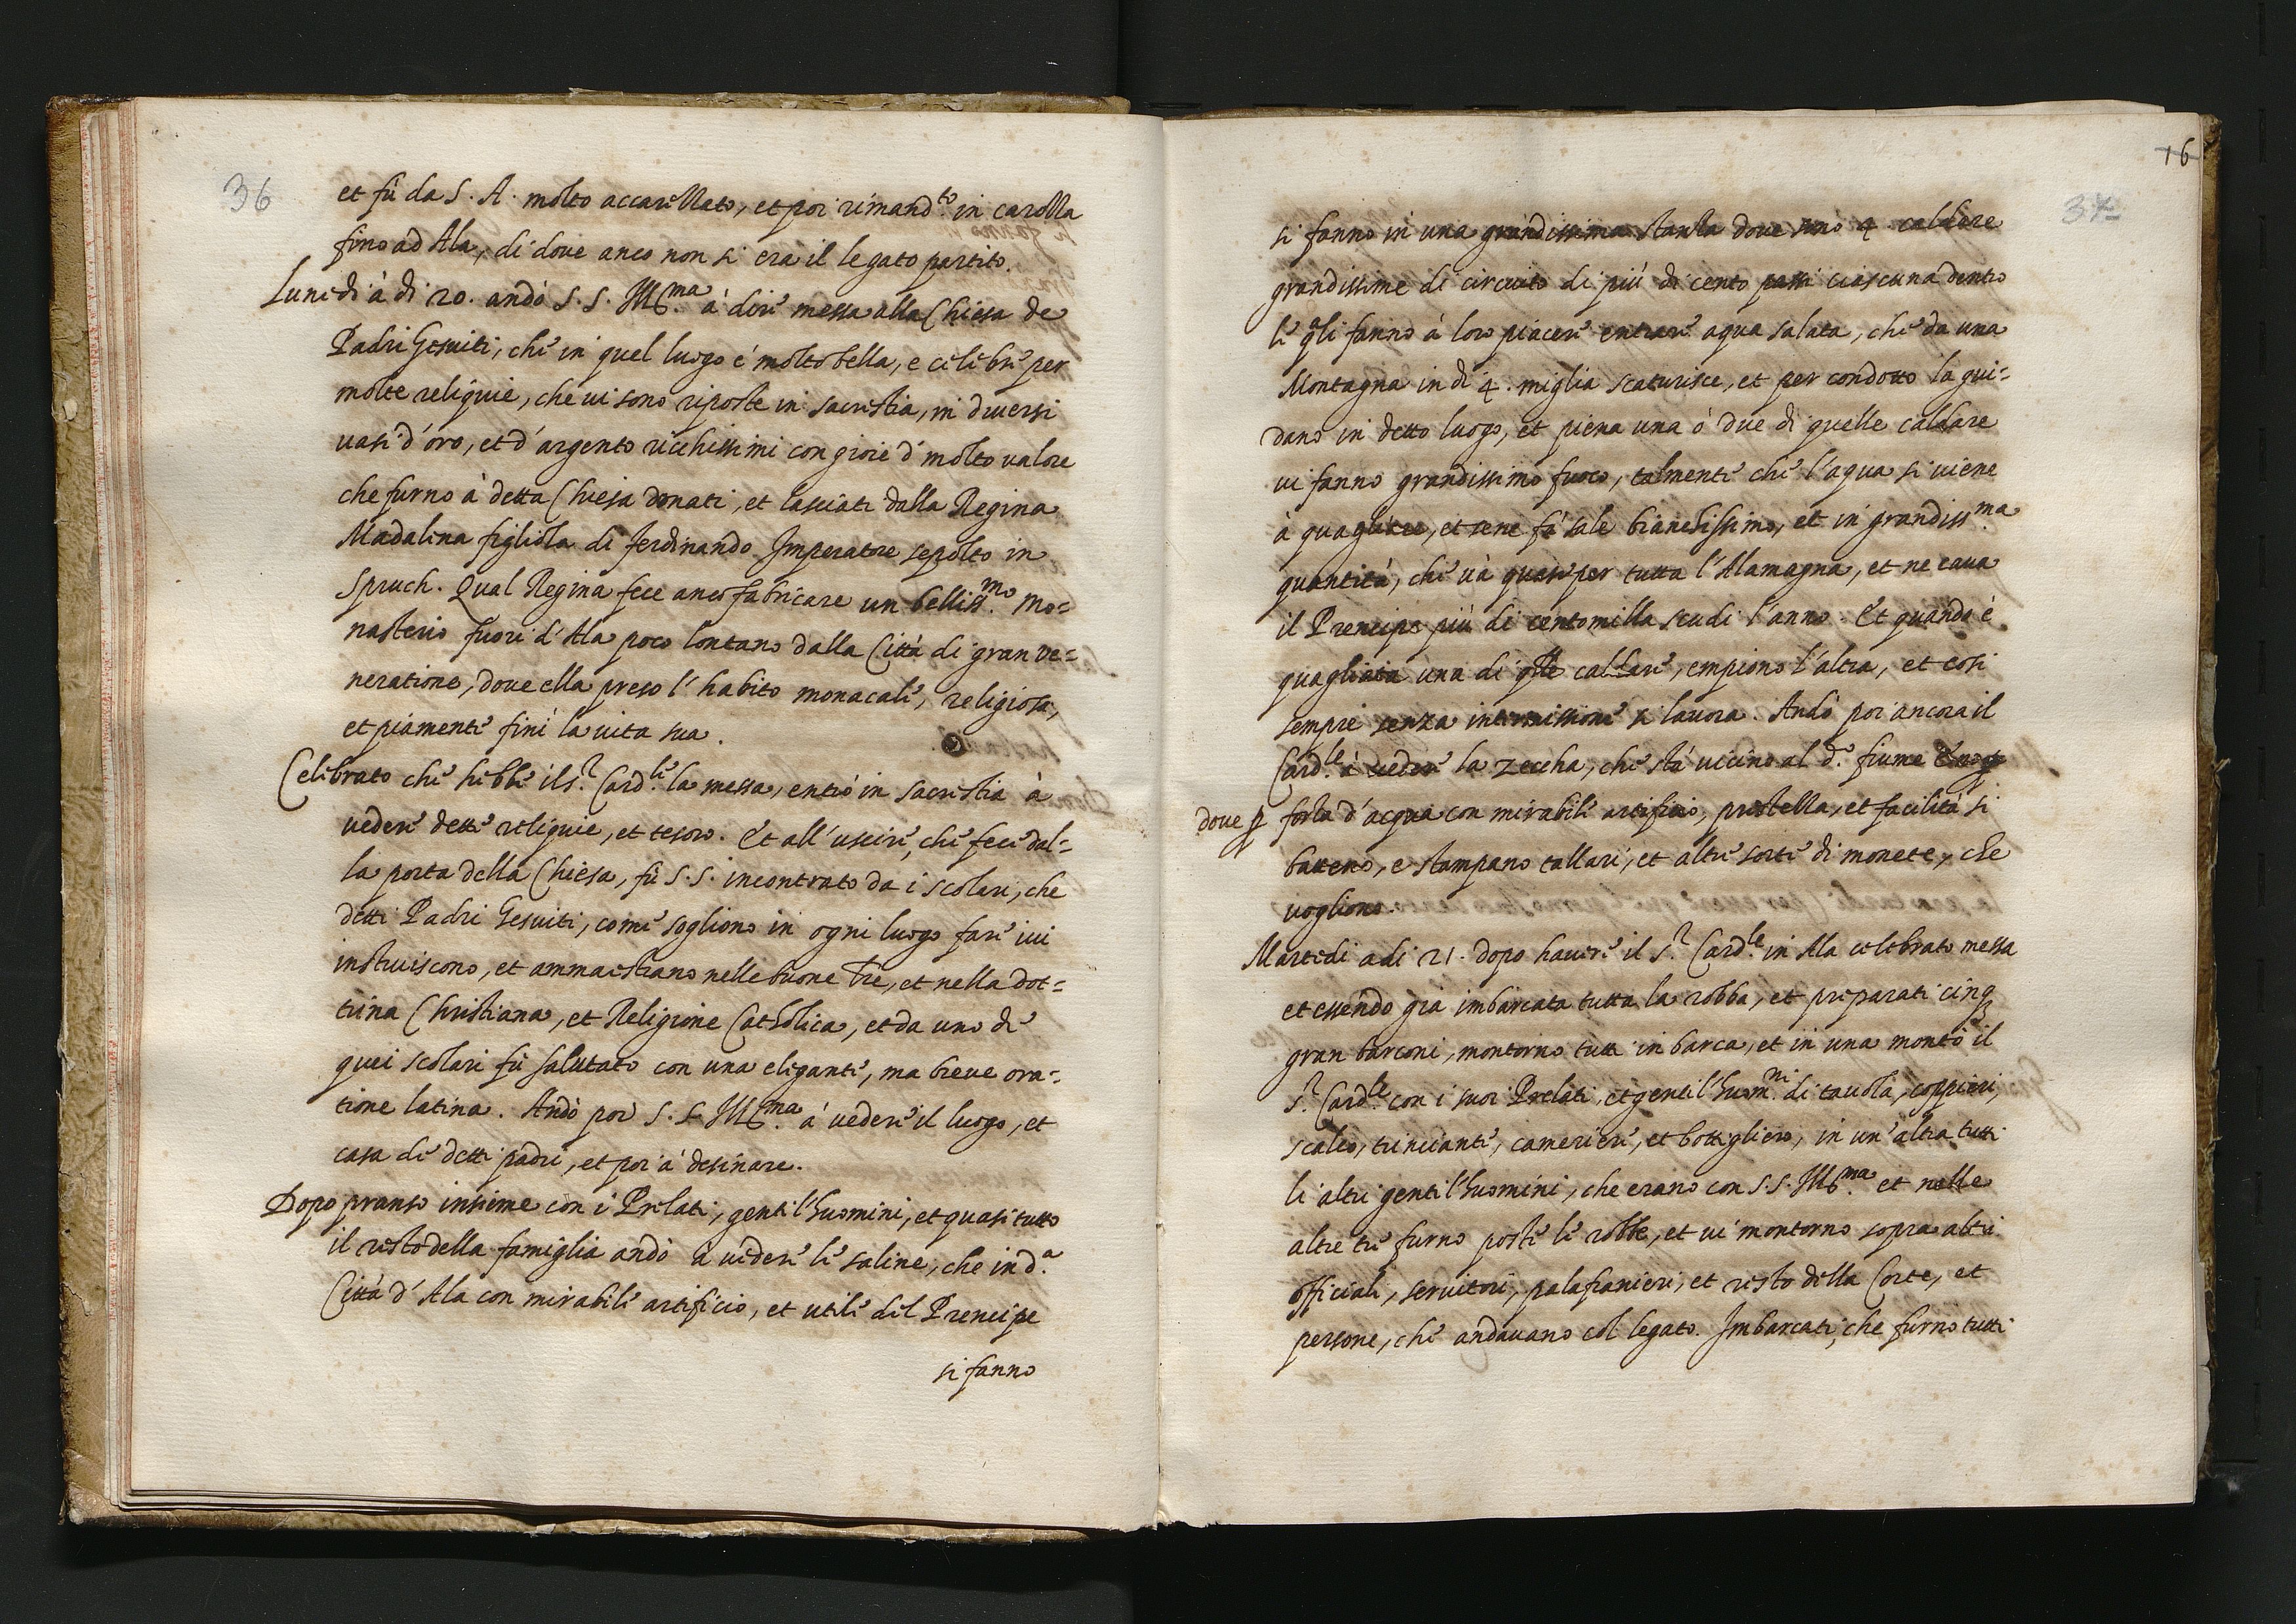 36
et fù da S. A. molto accarezzato, et poi rimand.to in carozza
fino ad Ala, di dove anco non si era il legato partito.
Lunedi à di 20. andò S. S. Ill.ma à dire messa alla Chiesa de
Padri Gesuiti, che in quel luogo è molto bella, e celebre per
molte reliquie, che vi sono riposte in sacristia, in diversi
vasi d'oro, et d'argento ricchissimi con gioie d molto valore
che furno à detta Chiesa donati, et lasciati dalla Regina
Madalina figliola di Ferdinando Imperatore sepolto in
Spruch. Qual Regina fece anco fabricare un belliss.mo mo=
nasterio fuori d'Ala poco lontano dalla Città di gran ve=
neratione, dove ella preso l'habito monacale, religiosa,
et piamente finì la vita sua.
Celebrato che hebbe il S.r Card.le la messa, entrò in sacristia à
vedere dette reliquie, et tesoro. Et all'uscire, che fece dal=
la porta della Chiesa, fù S. S. incontrato da i scolari, che
detti Padri Gesuiti, come sogliono in ogni luogo fare ivi
instruiscono, et ammaestrano nelle buone lre, et nella dot=
trina Christiana, et Religione Catholica, et da uno di
quei scolari fù salutato con una elegante, ma breve ora=
tione latina. Andò poi S. S. Ill.ma à vedere il luogo, et
casa di detti padri, et poi à desinare.
Dopo pranso insieme con i Prelati, gentil'huomini, et quasi tutto
il resto della famiglia andò a vedere le saline, che in d.a
Città d'Ala con mirabile artificio, et utile del Prencipe
si fanno
16
37
si fanno in una grandissima stanza dove sono 4 caldare
grandissime di circuito di più di cento passi ciascuna dentro
le qli fanno à loro piacere entrare aqua salata, che da una
Montagna indi 4. miglia scaturisce, et per condotto la gui=
dano in detto luogo, et piena una ò due di quelle caldare
vi fanno grandissimo fuoco, talmente che l'aqua si viene
à quagliare, et sene fà sale bianchissimo, et in grandiss.ma
quantità, che và quasi per tutta l'Alamagna, et ne cava
il Prencipe più di centomilla scudi l'anno. Et quando è
quagliata una di qlle caldare, empiono l'altra, et cosi
sempre senza intermissione si lavora. Andò poi ancora il
Card.le à vedere la zeccha, che stà vicino al d.o fiume
dove p forza d'acqua con mirabile artificio, prestezza, et facilità si
batteno, e stampano tallari, et altre sorte di monete, che
vogliono.
Martedi adi 21. dopo havere il S.r Card.le in Ala celebrato messa
et essendo già imbarcata tutta la robba, et preparati cinq
gran barconi, montorno tutti in barca, et in una montò il
S.r Card.le con i suoi Prelati, et gentil'huom.ni di tavola, coppieri,
scalco, trincianti, camerieri, et bottigliero, in un'altra tutti
li altri gentil'huomini, che erano con S. S. Ill.ma et nelle
altre tre furno poste le robbe, et vi montorno sopra altri
officiali, servitori, palafranieri, et resto della Corte, et
persone, che andavano col legato. Imbarcati, che furno tutti